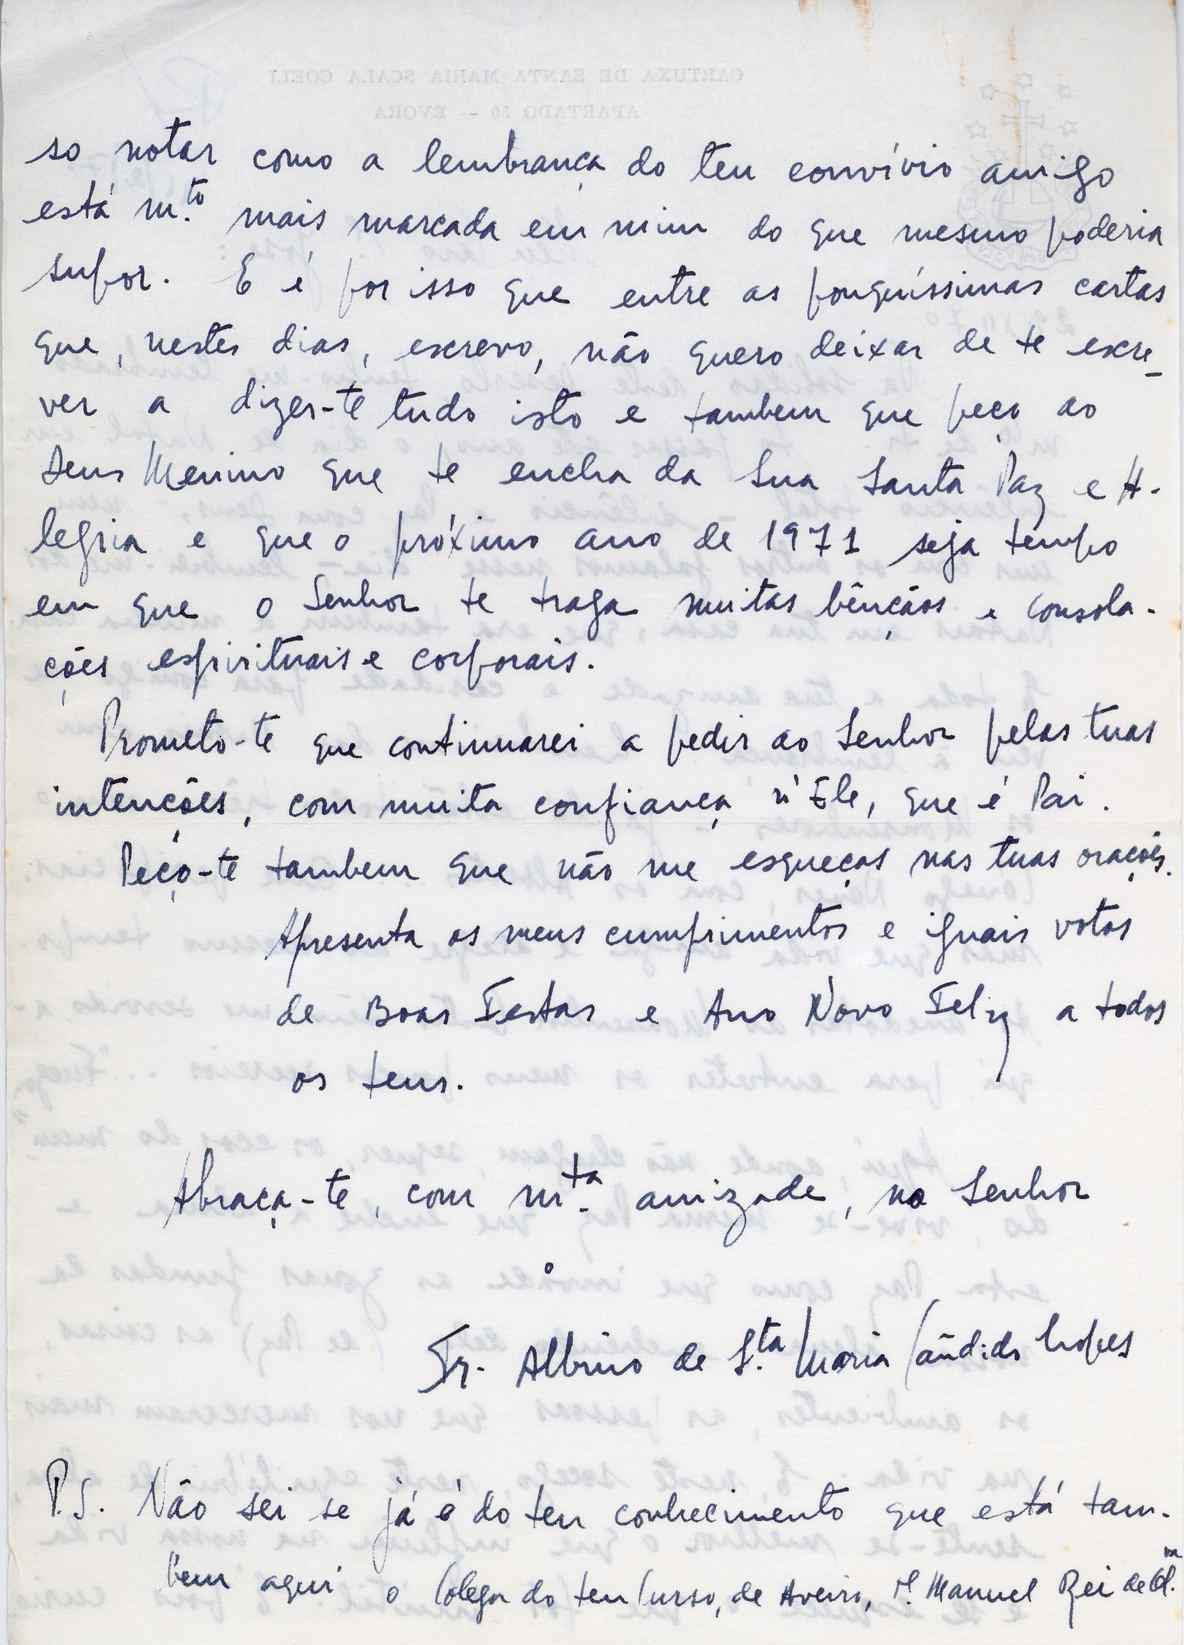 so notar como a lembrança do teu convívio amigo
está m.to mais marcada em mim do que mesmo poderia
supor. E é por isso que entre as pouquíssimas cartas
que, nestes dias, escrevo, não quero deixar de te escre-
ver a dizer-te tudo isto e tambem que peço ao
Deus Menino que te encha da Sua Santa Paz e A-
legria e que o próximo ano de 1971 seja tempo
em que o Senhor te traga muitas bênçãos e consola-
ções espirituais e corporais.
Prometo-te que continuarei a pedir ao Senhor pelas tuas
intenções, com muita confiança n'Ele, que é Pai.
Peço-te tambem que não me esqueças nas tuas orações.
Apresenta os meus cumprimentos e iguais votos
de Boas Festas e Ano Novo Feliz a todos
os teus.
Abraça-te, com m.ta amizade, no Senhor
Fr. Albino de S.ta Maria Cândido Lopes
P.S. Não sei se já é do teu conhecimento que está tam-
bem aqui o Colega do teu Curso, de Aveiro, P. Manuel Rei de